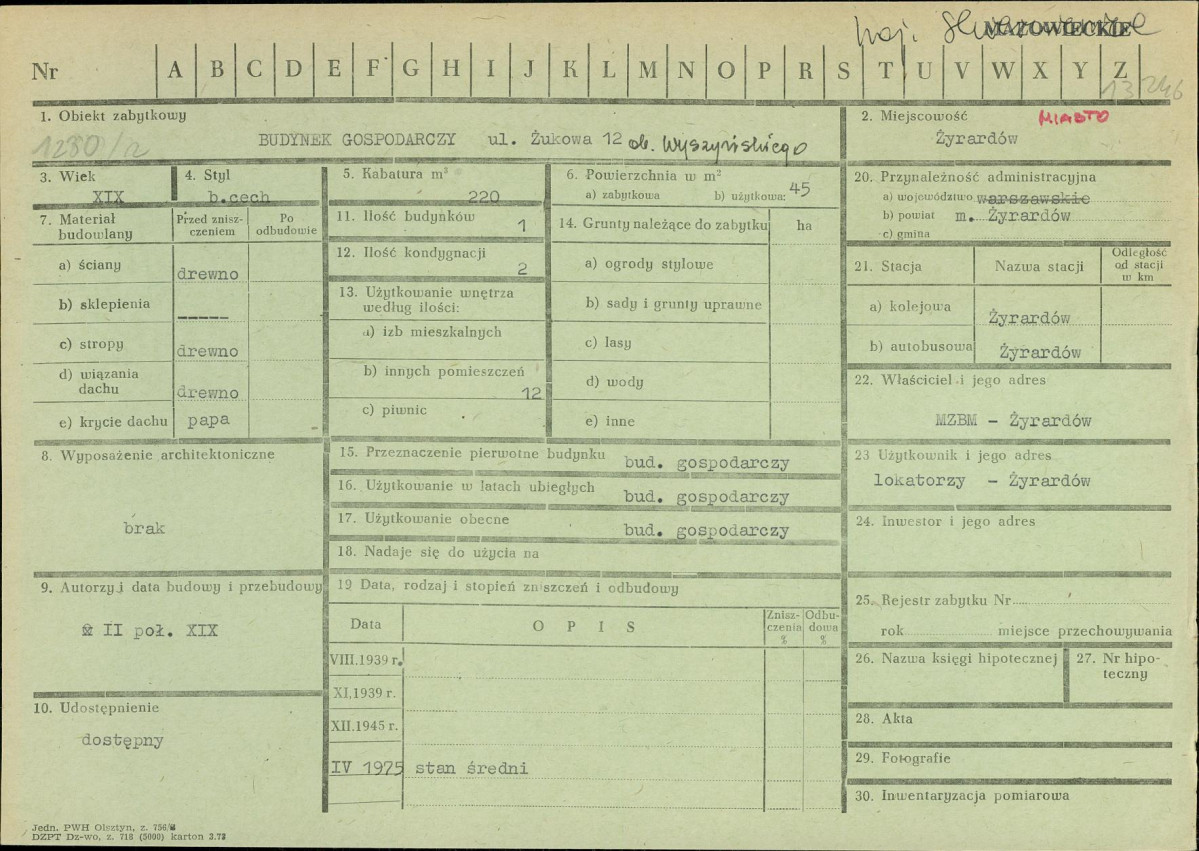 MAZOWIECKIE
woj.
Nr A B C D E F G H I J K L M N O P R S T U V W X Y Z
13 246
1. Obiekt zabytkowy
1280/12
BUDYNEK GOSPODARCZY ul. Żukowa 12 ob. Wyszyńskiego
2. Miejscowość MIASTO
Żyrardów
3. Wiek
XIX
4. Styl
b.cech
5. Kabatura m³
220
6. Powierzchnia w m²
a) zabytkowa b) użytkowa: 45
7. Materiał budowlany
Przed znisz-
czeniem
Po
odbudowie
a) ściany drewno
b) sklepienia -----
c) stropy drewno
d) wiązania
dachu drewno
e) krycie dachu papa
11. Ilość budynków
1
12. Ilość kondygnacji
2
13. Użytkowanie wnętrza
według ilości:
a) izb mieszkalnych
b) innych pomieszczeń
12
c) piwnic
14. Grunty należące do zabytku ha
a) ogrody stylowe
b) sady i grunty uprawne
c) lasy
d) wody
e) inne
20. Przynależność administracyjna
a) województwo warszawskie
b) powiat m. Żyrardów
c) gmina
21. Stacja Nazwa stacji
Odległość
od stacji
w km
a) kolejowa Żyrardów
b) autobusowa Żyrardów
22. Właściciel i jego adres
MZBM - Żyrardów
8. Wyposażenie architektoniczne
brak
15. Przeznaczenie pierwotne budynku bud. gospodarczy
16. Użytkowanie w latach ubiegłych bud. gospodarczy
17. Użytkowanie obecne bud. gospodarczy
18. Nadaje się do użycia na
23 Użytkownik i jego adres
lokatorzy - Żyrardów
24. Inwestor i jego adres
9. Autorzy i data budowy i przebudowy
II poł. XIX
19 Data, rodzaj i stopień zniszczeń i odbudowy
Data OPIS
Znisz-
czenia
%
Odbu-
dowa
%
VIII.1939 r.
XI.1939 r.
XII.1945 r.
IV 1975 stan średni
10. Udostępnienie
dostępny
25. Rejestr zabytku Nr
rok miejsce przechowywania
26. Nazwa księgi hipotecznej
27. Nr hipo-
teczny
28. Akta
29. Fotografie
30. Inwentaryzacja pomiarowa
Jedn. PWH Olsztyn, z. 756/
DZPT Dz-wo, z. 718 (5000) karton 3.73